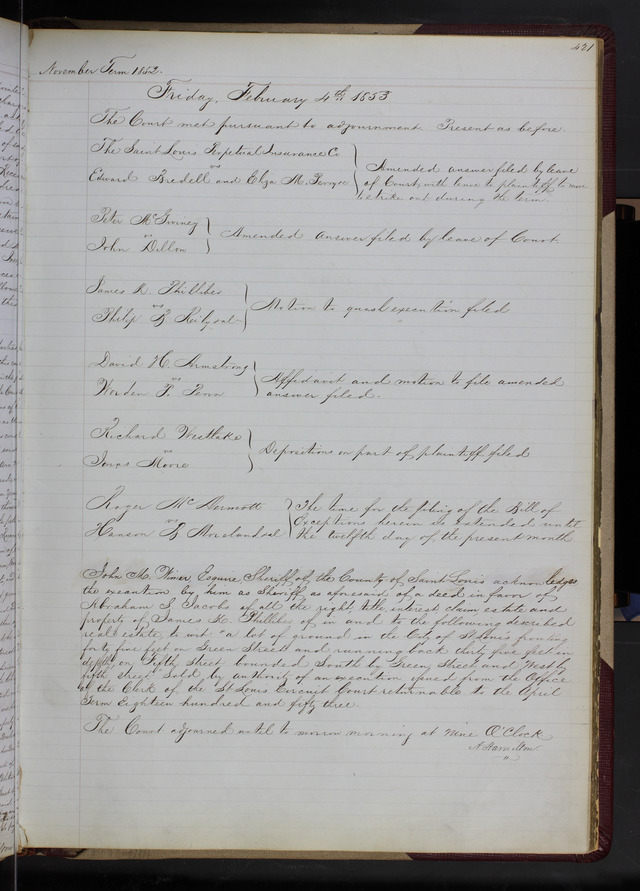 421
November Term 1852.
Friday, February 4th 1853
The Court met pursuant to adjournment. Present as before.
The Saint Louis Perpetual Insurance Co
vs
Edward Bredell and Eliza M.
Amended answer filed by leave
of Court, with leave to plaintiff to move
to strike out during the term
Peter McSwiney
vs
John Dillon
Amended answer filed by leave of Court.
James R. Philliber
vs
Philip B
Motion to quash execution filed
David H. Armstrong
vs
Worden P. Penn
Affidavit and motion to file amended
answer filed.
Richard Westlake
vs
Jonas Moore
Depositions on part of plaintiff filed
Roger McDermott
vs
Hanson B Moreland et al
The time for the filing of the Bill of
Exceptions herein is extended until
the twelfth day of the present month
John M. Wimer, Esquire, Sheriff of the County of Saint Louis acknowledges
the execution by him as Sheriff as aforesaid of a deed in favor of
Abraham S Jacobs of all the right title interest claim estate and
property of James R. Philliber of in and to the following described
real estate to wit: "a lot of ground in the City of St Louis fronting
forty five feet on Green Street and running back thirty five feet in
depth on Fifth Street bounded South by Green Street and West by
fifth street" Sold by authority of an execution issued from the Office
of the Clerk of the St Louis Circuit Court returnable to the April
Term Eighteen hundred and fifty three.
The Court adjourned until to morrow morning at nine O'Clock
A Hamilton